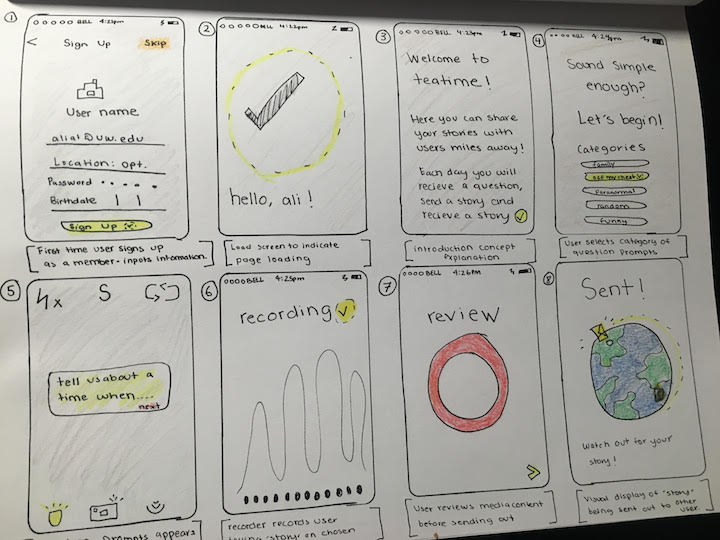 1
BELL 4:21pm
< Sign Up Skip
User name
alia1@uw.edu
Location: opt.
Password
Birthdate
Sign Up
First time user signs up
as a member- inputs information.
2
BELL 4:22pm
hello, ali!
Load screen to indicate
page loading
3
BELL 4:23pm
Welcome to
teatime!
Here you can share
your stories with
users miles away!
Each day you will
recieve a question,
send a story and
recieve a story
introduction concept
explanation
4
BELL 4:24pm
Sound simple
enough?
Let's begin!
Categories
family
off my chest
paranormal
random
funny
User selects category of
question prompts
5
x S
tell us about a
time when....
next
prompts appears
6
BELL 4:25pm
recording
recorder records user
story on chosen
7
BELL 4:26pm
review
>
User reviews media content
before sending out
8
Sent!
Watch out for your
story!
Visual display of "story"
being sent out to other
user.